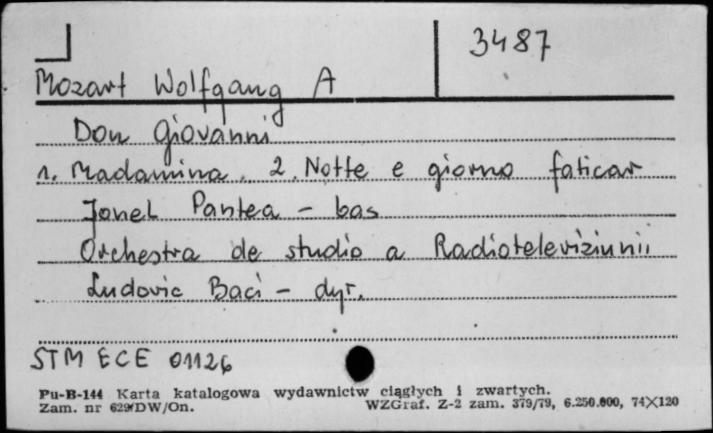 3487
Mozart Wolfgang A
Don Giovanni
1. Madamina. 2. Notte e giorno faticar
Jonel Pantea - bas
Orchestra de studio a Radioteleviziunii
Ludovic Baci - dyr.
STM ECE 01126
Pu-B-144 Karta katalogowa wydawnictw ciągłych i zwartych.
Zam. nr 629/DW/On. WZGraf. Z-2 zam. 379/79, 6.250.000, 74X120